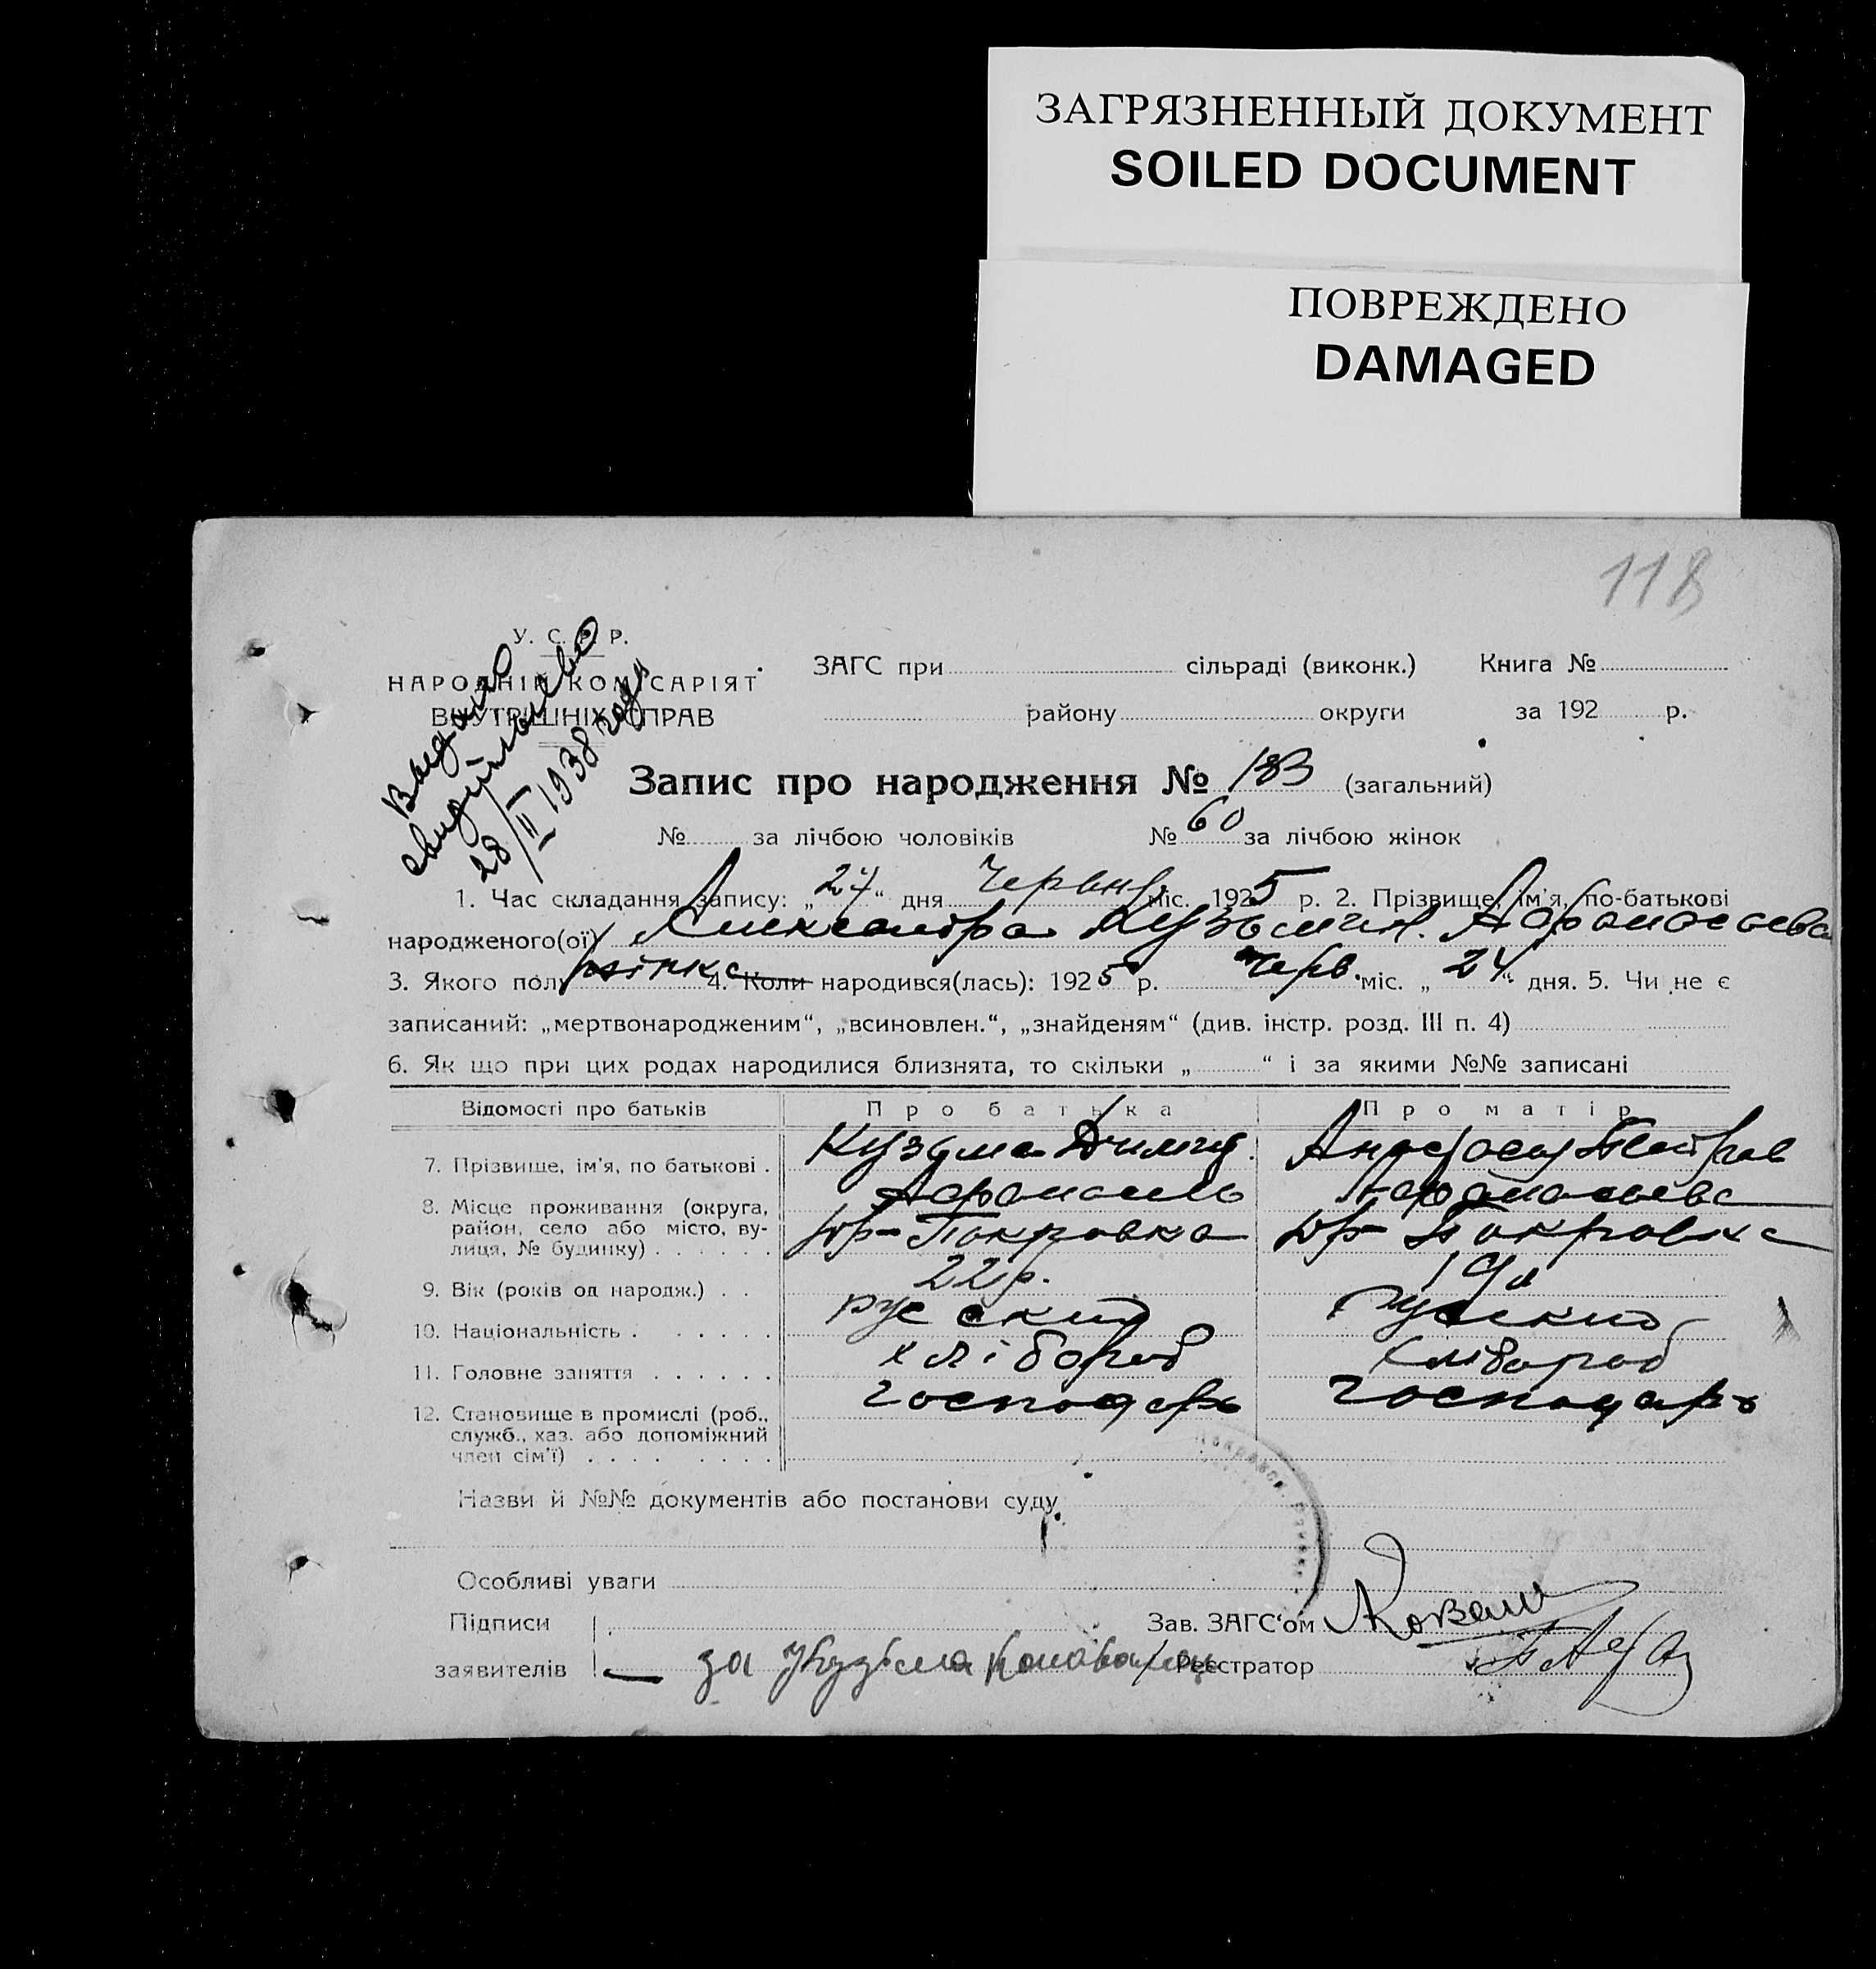 ЗАГРЯЗНЕННЫЙ ДОКУМЕНТ
SOILED DOCUMENT
ПОВРЕЖДЕНО
DAMAGED
118
У. С. Р. Р.
НАРОДНІЙ КОМІСАРІЯТ
ВНУТРІШНІХ СПРАВ
Выдано
свидительство
28/III 1938 года
ЗАГС при сільраді (виконк.) Книга №
району округи за 192 р.
Запис про народження № 183 (загальний)
№ за лічбою чоловіків № 60 за лічбою жінок
1. Час складання запису: „24“ дня Червня міс. 1925 р. 2. Прізвище, ім'я, по-батькові
народженого(ої) Александра Кузьмин. Афанасьева
3. Якого полу жінка 4. Коли народився(лась): 1925 р. Черв. міс. „24“ дня. 5. Чи не є
записаний: „мертвонародженим“, „всиновлен.“, „знайденям“ (див. інстр. розд. III п. 4)
6. Як що при цих родах народилися близнята, то скільки „ “ і за якими №№ записані
Відомості про батьків Про батька Про матір
7. Прізвище, ім'я, по батькові . Кузьма Дмит. Петров
Афанасьев Афанасьева
8. Місце проживання (округа,
район, село або місто, ву-
лиця, № будинку) . . . . . . Покровка Покровка
9. Вік (років од народж.) . . 22 р. 19
10. Національність . . . . . . русский русский
11. Головне заняття . . . . . . хлібороб хлібороб
12. Становище в промислі (роб.,
служб., хаз. або допоміжний
член сім'ї) . . . . . . . . господарь господарь
Назви й №№ документів або постанови суду
Особливі уваги
Підписи Зав. ЗАГС'ом
заявителів за Кузьма Реєстратор